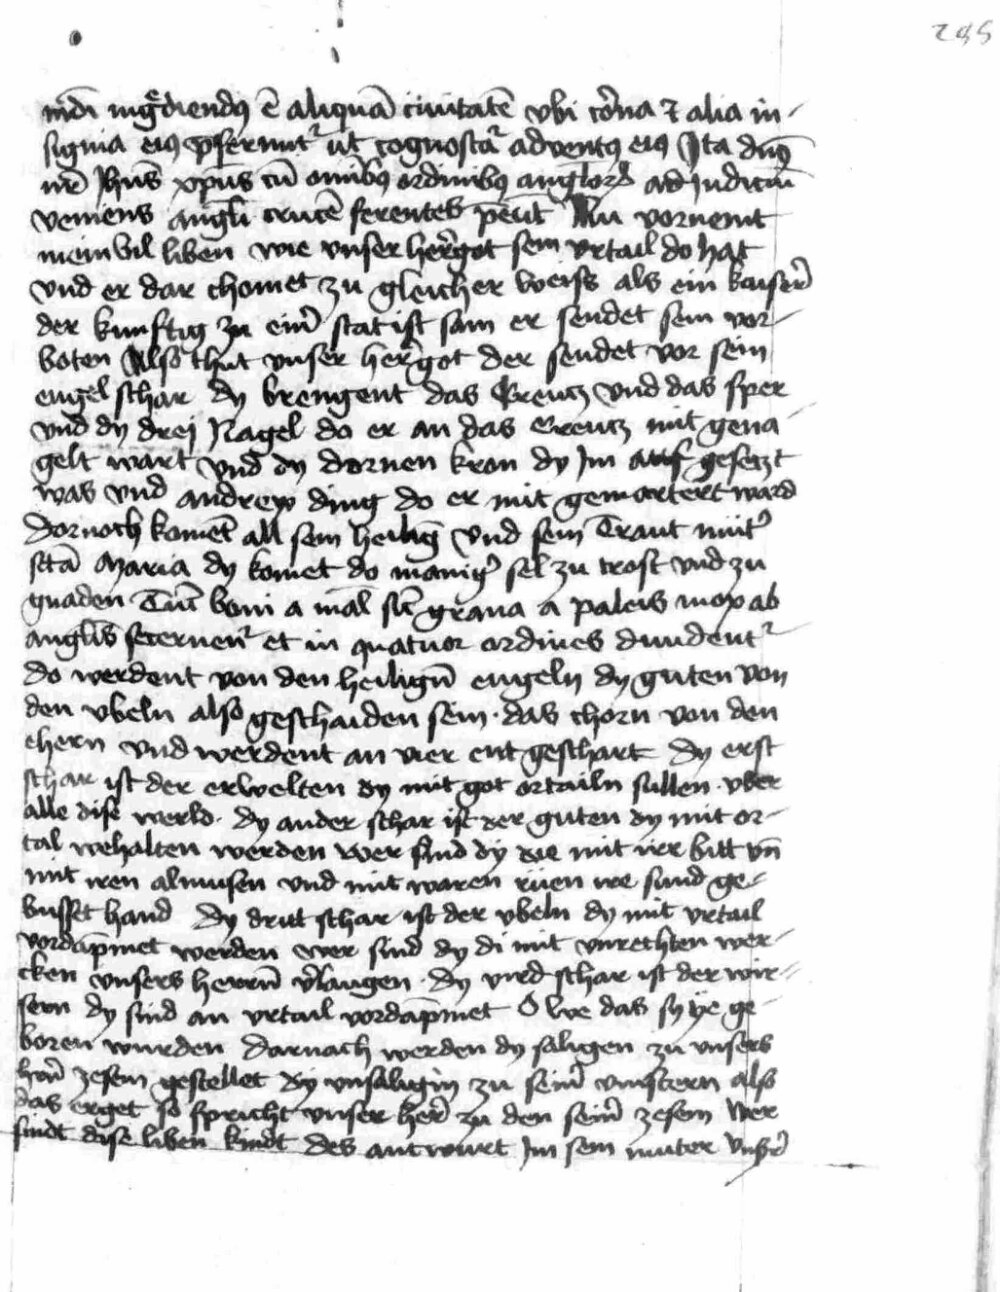 295
mūdi ingᵉdiendꝰ ē aliquā ciuitatē vbi coᵉona ⁊ alia in-
signia eiꝰ pferunt᷑ ut cognoscat᷑ adventꝰ eiꝰ Ita dn̄s
nr̄ Jhūs xp̄us cū omībꝰ ordinibꝰ anglorꝝ ad Judiciū
veniens angli crucē ferentes p̄eūt Nu vornemt
mein vil liben wie vnser her̄got sein vrtail do hat
vnd er dar chomet zu gleicher weiss als ein kaiser̄
der kunftig zu eim̄ stat ist sam er sendet sein vor-
boten Also thut vnser her̄got der sendet vor sein
engel schar dy brengent das Creutz vnd das sper
vnd dy drej Nagel do er an das Creutz mit gena-
gelt wart vnd dy dornen kron dy Im auf gesetzt
was vnd andrew ding do er mit gemartert ward
dornoch komet̄ all sein heiliḡ vnd sein Traut mut᷑
sctā Maria dy komet do manig᷑ sel zu trost vnd zu
gnaden Tūc boni a mal̄ sic̄ grana a paleis mox ab
anglīs secernent᷑ et in quatuor ordines diuident᷑
do werdent von den heilign̄ engeln dy guten von
den vbeln also geschaiden sein · das chorn von den
ehern vnd werdent an vier ent geschart dy erst
schar ist der erwelten dy mit got ortailn sullen · vber
alle dise werld · dy ander schar ist der guten dy mit or-
tal wehalten werden wer sind dy die mit irr bitt vn̄
mit iren almusen vnd mit waren rüen ire sund ge-
busset hand dy drit schar ist der vbeln dy mit vrtail
vordāpmet werden wer sind dy di mit vnrechten wer-
cken vnsers herrn̄ v̄laugen · dy vird schar ist der wir-
sern dy sind an vrtail vordāpmet O we das sy ye ge-
boren wurden darnach werden dy saligen zu vnsers
hern̄ zesem gestellet dy vnsaligin zu seim̄ winstern also
das erget so spricht vnser her̄ zu den seim̄ zesem Wer
sindt dise liben kindt des antwurt Im sein muter vnsr̄